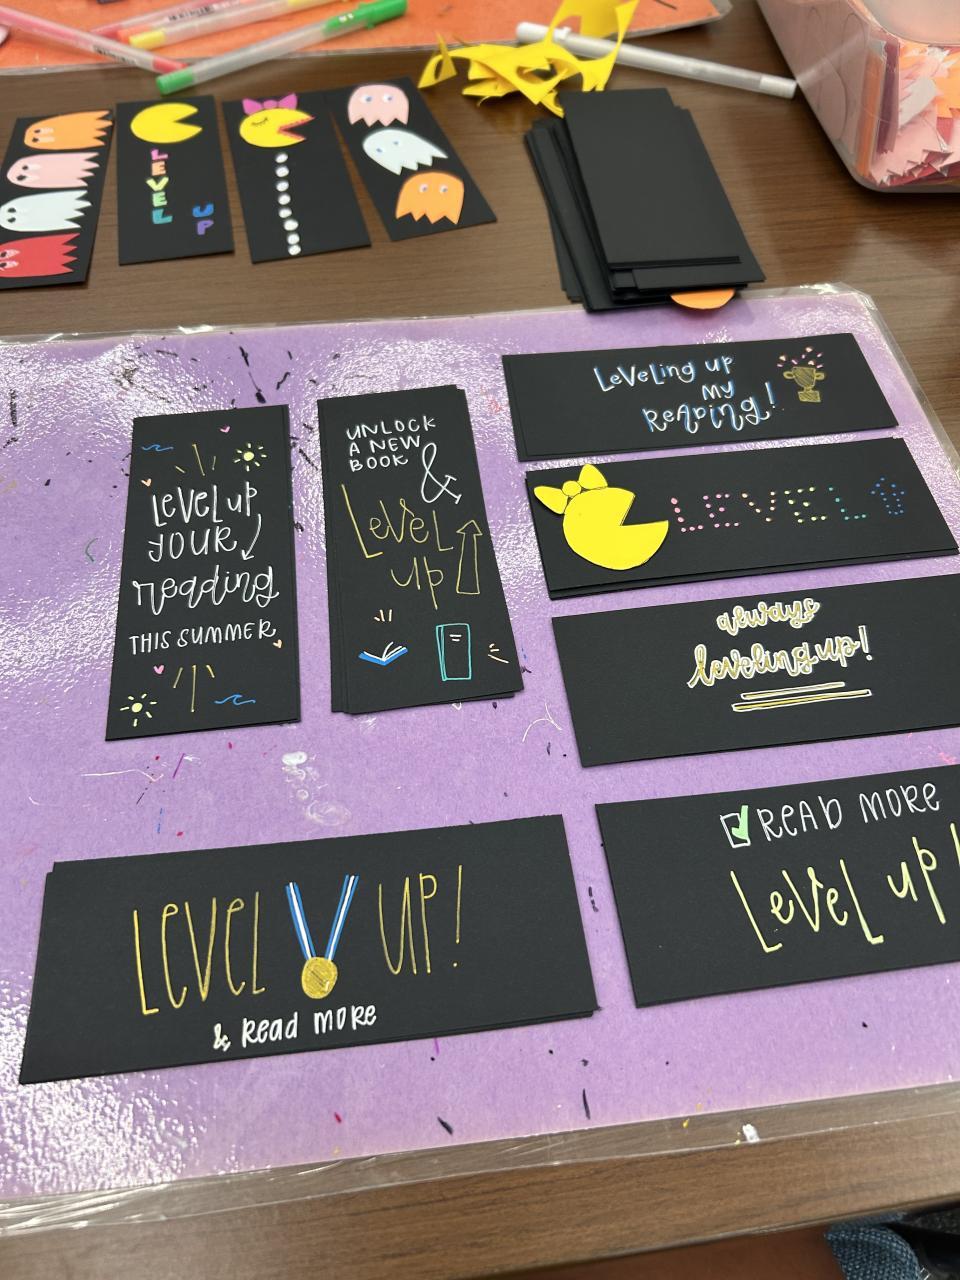 LEVEL
UP
Leveling up
my
Reading!
LEVEL
always
leveling up!
UNLOCK
A NEW
BOOK &
LeVeL
up
LEVEL up
YOUR
reading
THIS SUMMER
READ MORE
LeVeL up!
LEVEL UP!
& Read MORE